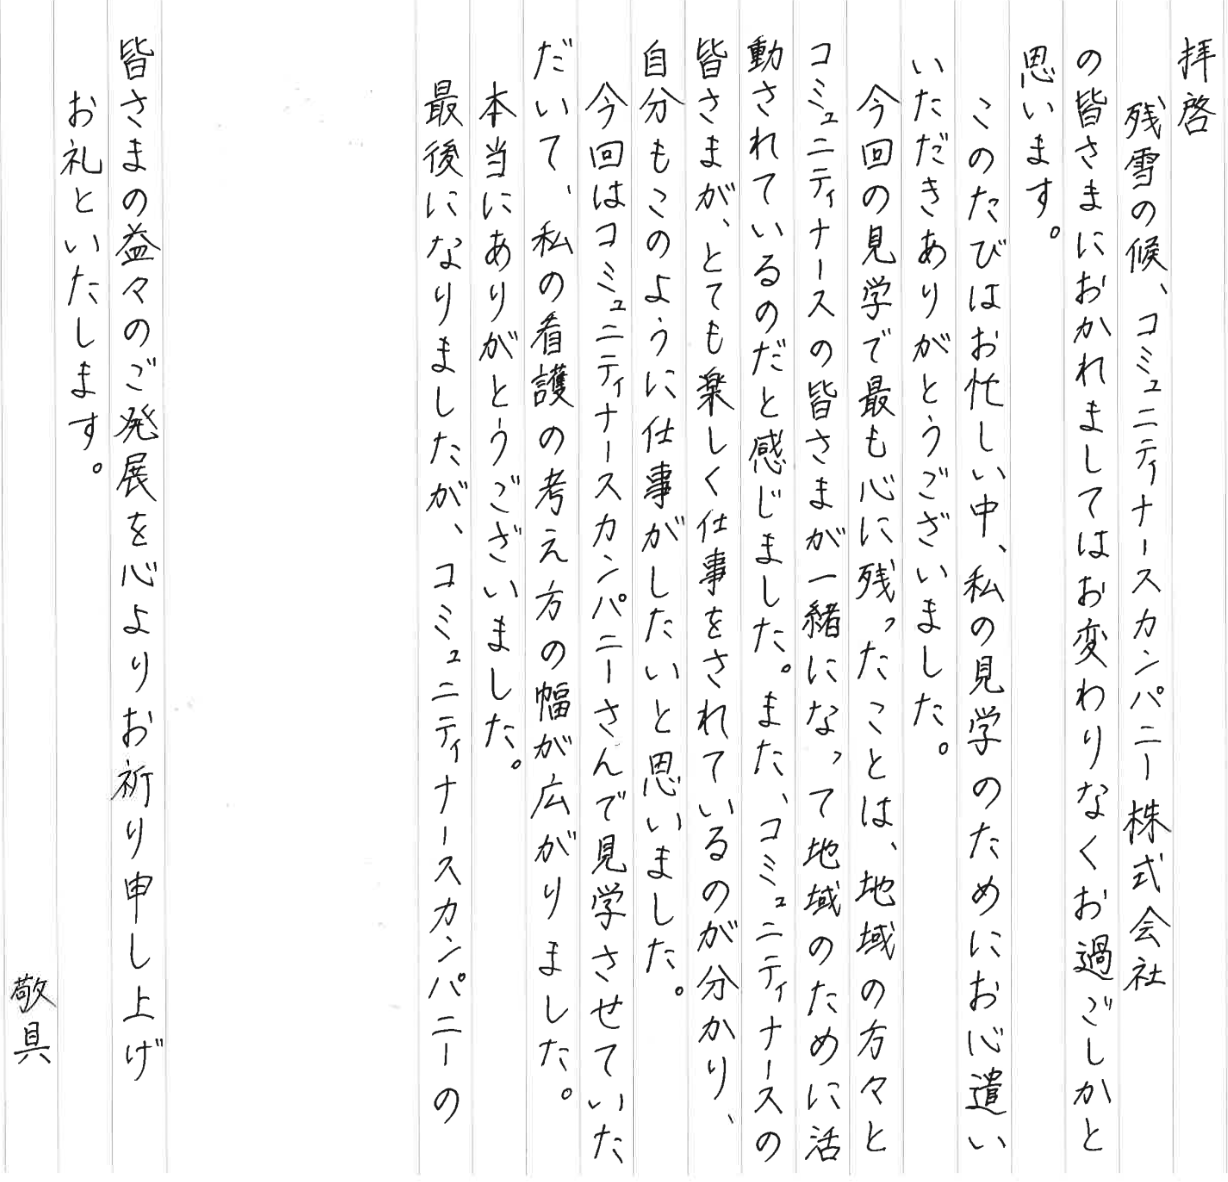 拝啓
残雪の候、コミュニティナースカンパニー株式会社
の皆さまにおかれましてはお変わりなくお過ごしかと
思います。
このたびはお忙しい中、私の見学のためにお心遣い
いただきありがとうございました。
今回の見学で最も心に残ったことは、地域の方々と
コミュニティナースの皆さまが一緒になって地域のために活
動されているのだと感じました。また、コミュニティナースの
皆さまが、とても楽しく仕事をされているのが分かり、
自分もこのように仕事がしたいと思いました。
今回はコミュニティナースカンパニーさんで見学させていた
だいて、私の看護の考え方の幅が広がりました。
本当にありがとうございました。
最後になりましたが、コミュニティナースカンパニーの
皆さまの益々のご発展を心よりお祈り申し上げ
お礼といたします。
敬具